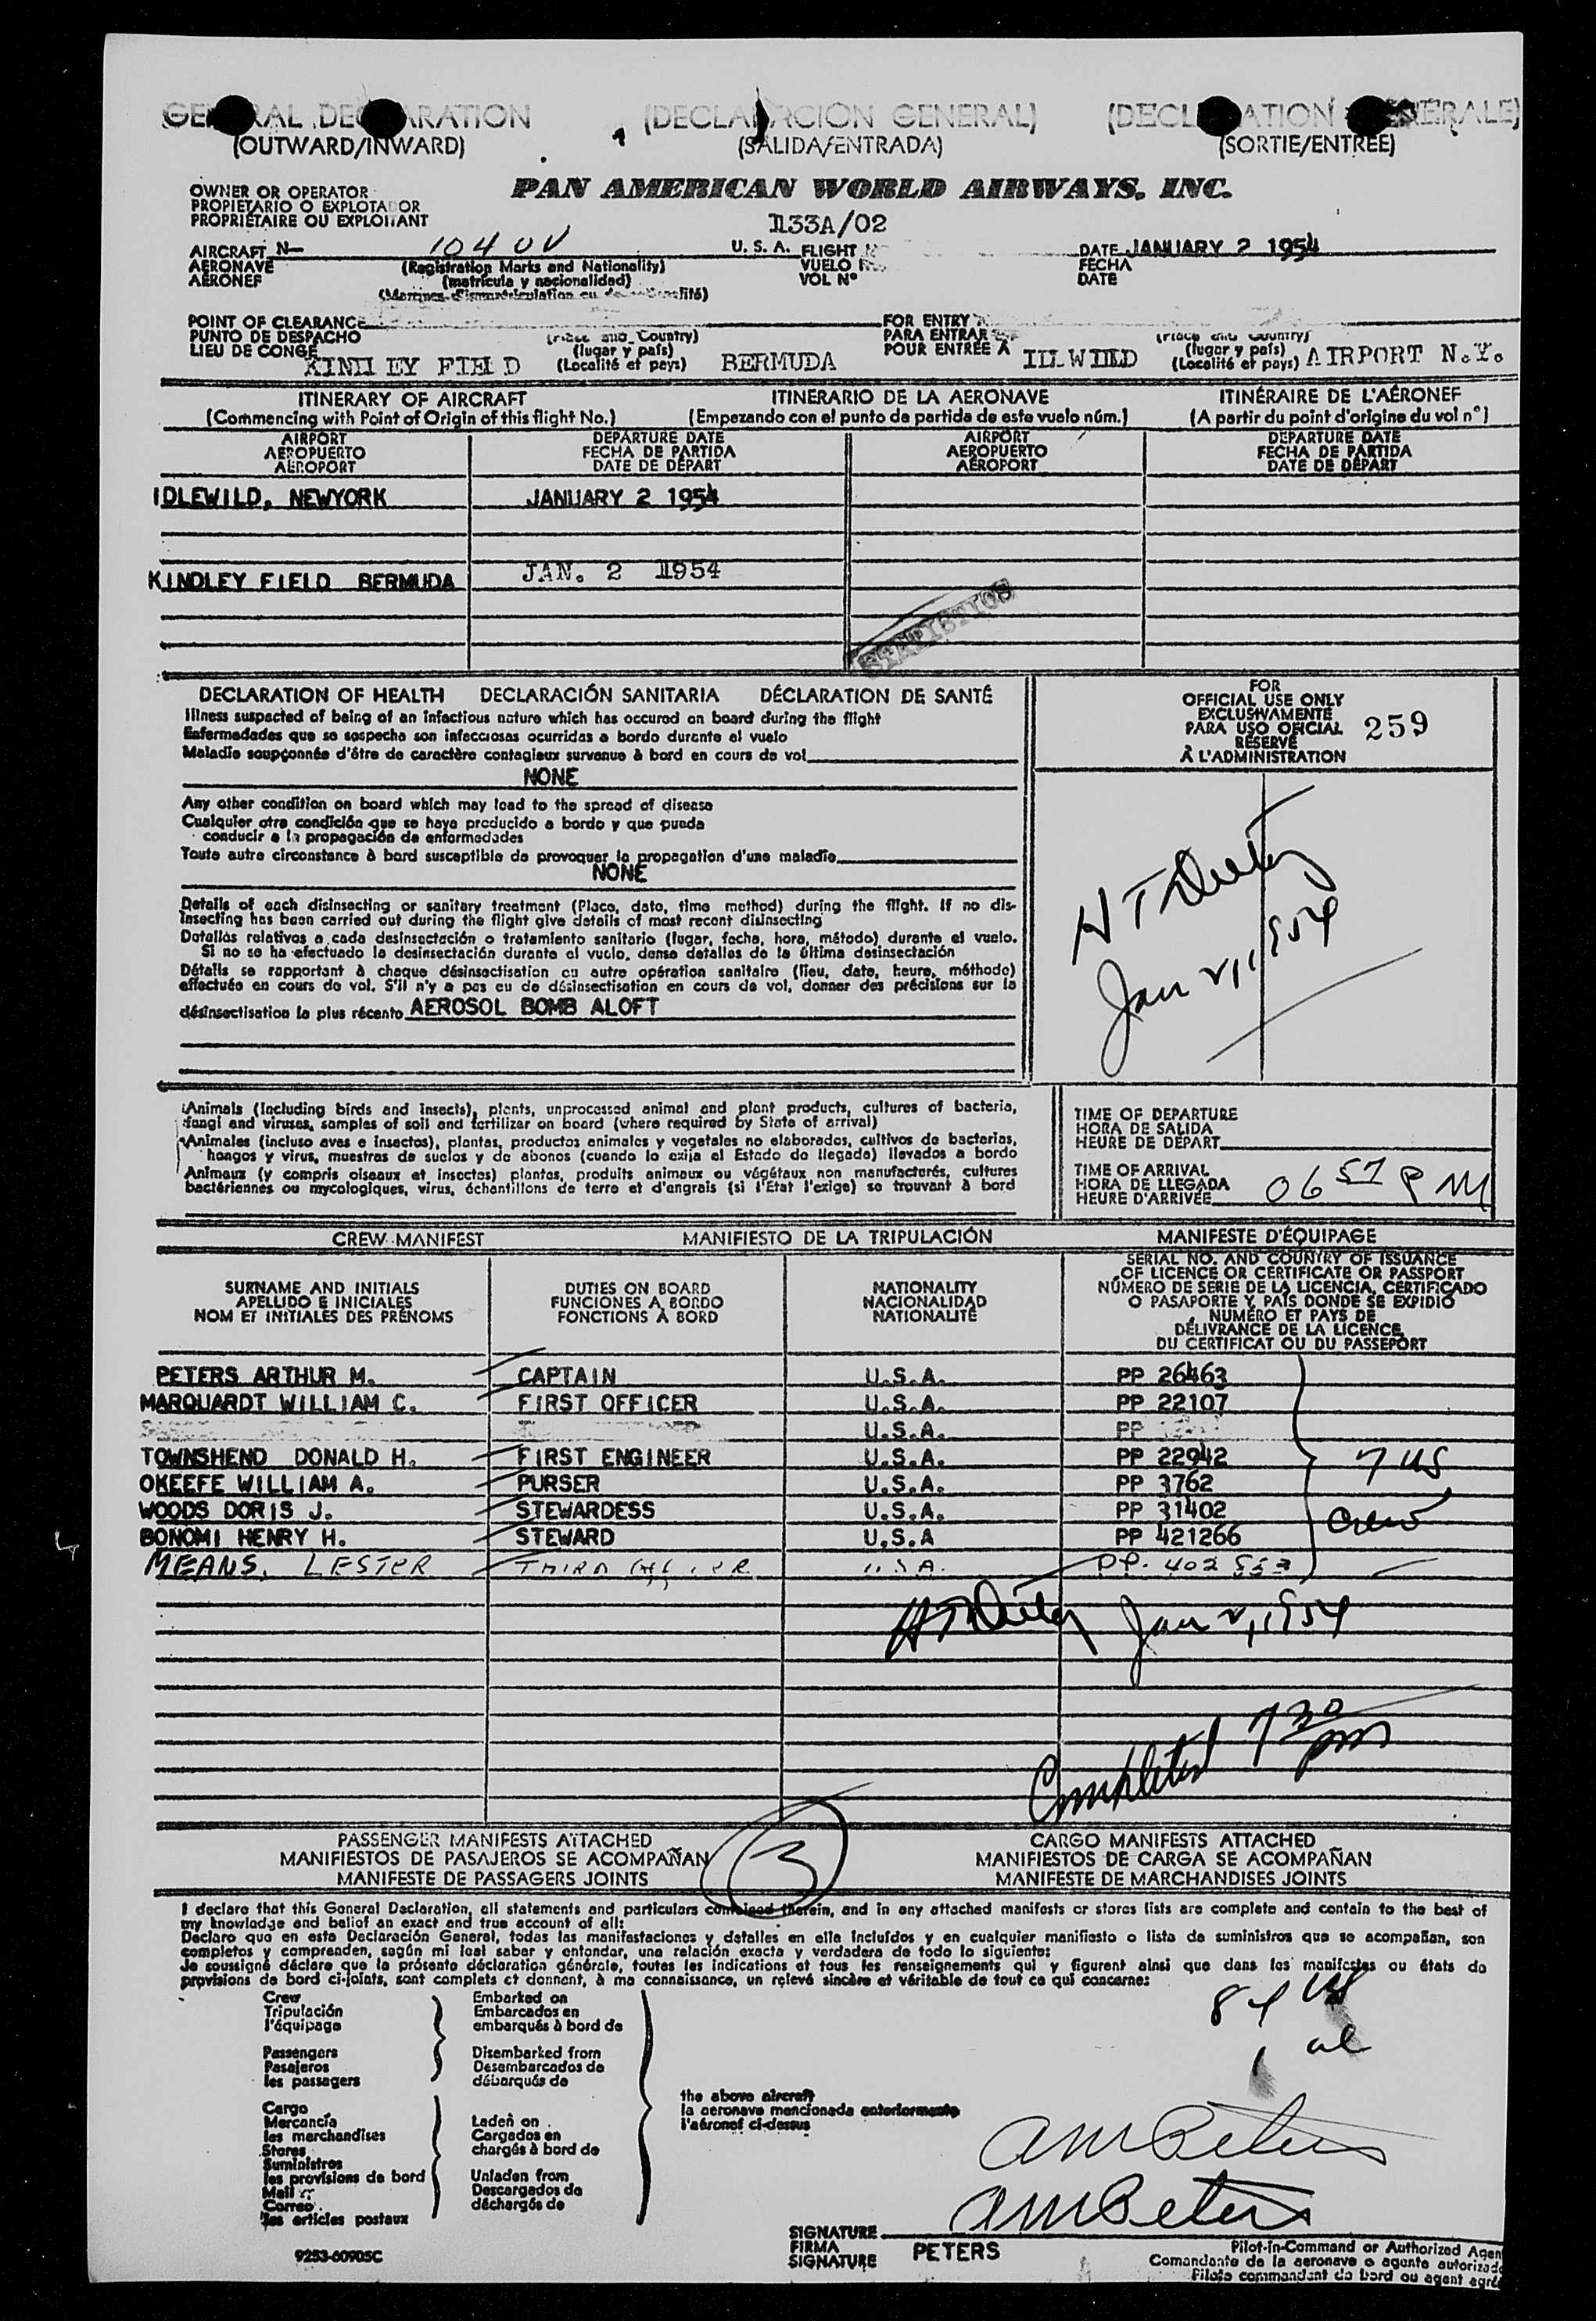 GENERAL DECLARATION (DECLARACION GENERAL) (DECLARATION GENERALE)
(OUTWARD/INWARD) (SALIDA/ENTRADA) (SORTIE/ENTRÉE)
OWNER OR OPERATOR PAN AMERICAN WORLD AIRWAYS, INC.
PROPIETARIO O EXPLOTADOR
PROPRIÉTAIRE OU EXPLOITANT
133A/02
AIRCRAFT N— 1040V U. S. A. FLIGHT DATE JANUARY 2 1954
AERONAVE (Registration Marks and Nationality) VUELO FECHA
AÉRONEF (matrícula y nacionalidad) VOL Nº DATE
POINT OF CLEARANCE FOR ENTRY
PUNTO DE DESPACHO (Place and Country) PARA ENTRAR (Place and Country)
LIEU DE CONGÉ (lugar y país) POUR ENTRÉE À (lugar y país)
KINDLEY FIELD (Localité et pays) BERMUDA IDLWILD (Localité et pays) AIRPORT N.Y.
ITINERARY OF AIRCRAFT ITINERARIO DE LA AERONAVE ITINÉRAIRE DE L'AÉRONEF
(Commencing with Point of Origin of this flight No.) (Empezando con el punto de partida de este vuelo núm.) (A partir du point d'origine du vol nº)
AIRPORT DEPARTURE DATE AIRPORT DEPARTURE DATE
AEROPUERTO FECHA DE PARTIDA AEROPUERTO FECHA DE PARTIDA
AÉROPORT DATE DE DÉPART AÉROPORT DATE DE DÉPART
IDLEWILD, NEWYORK JANUARY 2 1954
KINDLEY FIELD BERMUDA JAN. 2 1954
STATISTICS
DECLARATION OF HEALTH DECLARACIÓN SANITARIA DÉCLARATION DE SANTÉ
Illness suspected of being of an infectious nature which has occured on board during the flight
Enfermedades que se sospecha son infecciosas ocurridas a bordo durante el vuelo
Maladie soupçonnée d'être de caractère contagieux survenue à bord en cours de vol
NONE
Any other condition on board which may lead to the spread of disease
Cualquier otra condición que se haya producido a bordo y que pueda
conducir a la propagación de enfermedades
Toute autre circonstance à bord susceptible de provoquer la propagation d'une maladie
NONE
Details of each disinsecting or sanitary treatment (Place, date, time method) during the flight. If no dis-
insecting has been carried out during the flight give details of most recent disinsecting
Detalles relativos a cada desinsectación o tratamiento sanitario (lugar, fecha, hora, método) durante el vuelo.
Si no se ha efectuado la desinsectación durante el vuelo, dense detalles de la última desinsectación
Détails se rapportant à chaque désinsectisation ou autre opération sanitaire (lieu, date, heure, méthode)
effectuée en cours de vol. S'il n'y a pas eu de désinsectisation en cours de vol, donner des précisions sur la
désinsectisation la plus récente AEROSOL BOMB ALOFT
FOR
OFFICIAL USE ONLY
EXCLUSIVAMENTE
PARA USO OFICIAL 259
RÉSERVÉ
À L'ADMINISTRATION
Jan 2, 1954
Animals (Including birds and insects), plants, unprocessed animal and plant products, cultures of bacteria,
fungi and viruses, samples of soil and fertilizer on board (where required by State of arrival)
Animales (incluso aves e insectos), plantas, productos animales y vegetales no elaborados, cultivos de bacterias,
hongos y virus, muestras de suelos y de abonos (cuando lo exija el Estado de llegada) llevados a bordo
Animaux (y compris oiseaux et insectes) plantes, produits animaux ou végétaux non manufacturés, cultures
bactériennes ou mycologiques, virus, échantillons de terre et d'engrais (si l'Etat l'exige) se trouvant à bord
TIME OF DEPARTURE
HORA DE SALIDA
HEURE DE DÉPART
TIME OF ARRIVAL
HORA DE LLEGADA
HEURE D'ARRIVÉE 06 57 PM
CREW MANIFEST MANIFIESTO DE LA TRIPULACIÓN MANIFESTE D'ÉQUIPAGE
SURNAME AND INITIALS DUTIES ON BOARD NATIONALITY
APELLIDO E INICIALES FUNCIONES A BORDO NACIONALIDAD
NOM ET INITIALES DES PRÉNOMS FONCTIONS À BORD NATIONALITÉ
SERIAL NO. AND COUNTRY OF ISSUANCE
OF LICENCE OR CERTIFICATE OR PASSPORT
NÚMERO DE SERIE DE LA LICENCIA, CERTIFICADO
O PASAPORTE Y PAÍS DONDE SE EXPIDIÓ
NUMÉRO ET PAYS DE
DÉLIVRANCE DE LA LICENCE,
DU CERTIFICAT OU DU PASSEPORT
PETERS ARTHUR M. CAPTAIN U.S.A. PP 26463
MARQUARDT WILLIAM C. FIRST OFFICER U.S.A. PP 22107
U.S.A. PP
TOWNSHEND DONALD H. FIRST ENGINEER U.S.A. PP 22942 7 US
OKEEFE WILLIAM A. PURSER U.S.A. PP 3762
WOODS DORIS J. STEWARDESS U.S.A. PP 31402 Crew
BONOMI HENRY H. STEWARD U.S.A PP 421266
MEANS, LESTER THIRD U.S.A. PP.
Jan 2, 1954
Completed 7 30 pm
PASSENGER MANIFESTS ATTACHED CARGO MANIFESTS ATTACHED
MANIFIESTOS DE PASAJEROS SE ACOMPAÑAN 3 MANIFIESTOS DE CARGA SE ACOMPAÑAN
MANIFESTE DE PASSAGERS JOINTS MANIFESTE DE MARCHANDISES JOINTS
I declare that this General Declaration, all statements and particulars contained therein, and in any attached manifests or stores lists are complete and contain to the best of
my knowledge and belief an exact and true account of all:
Declaro que en esta Declaración General, todas las manifestaciones y detalles en ella incluídos y en cualquier manifiesto o lista de suministros que se acompañan, son
completos y comprenden, según mi leal saber y entender, una relación exacta y verdadera de todo lo siguiente:
Je soussigné déclare que la présente déclaration générale, toutes les indications et tous les renseignements qui y figurent ainsi que dans les manifestes ou états de
provisions de bord ci-joints, sont complets et donnent, à ma connaissance, un relevé sincère et véritable de tout ce qui concerne:
Crew Embarked on
Tripulación Embarcados en
l'équipage embarqués à bord de
Passengers Disembarked from
Pasajeros Desembarcados de
les passagers débarqués de
84 US
1 al
the above aircraft
la aeronave mencionada anteriormente
l'aéronef ci-dessus
Cargo
Mercancía Laden on
les merchandises Cargados en
Stores chargés à bord de
Suministros
les provisions de bord Unladen from
Mail Descargados de
Correo déchargés de
les articles postaux
AM Peters
AM Peters
SIGNATURE
FIRMA PETERS
SIGNATURE
Pilot-in-Command or Authorized Agen
Comandante de la aeronave o agente autorizado
Pilote commandant de bord ou agent agréé
9253-60905C